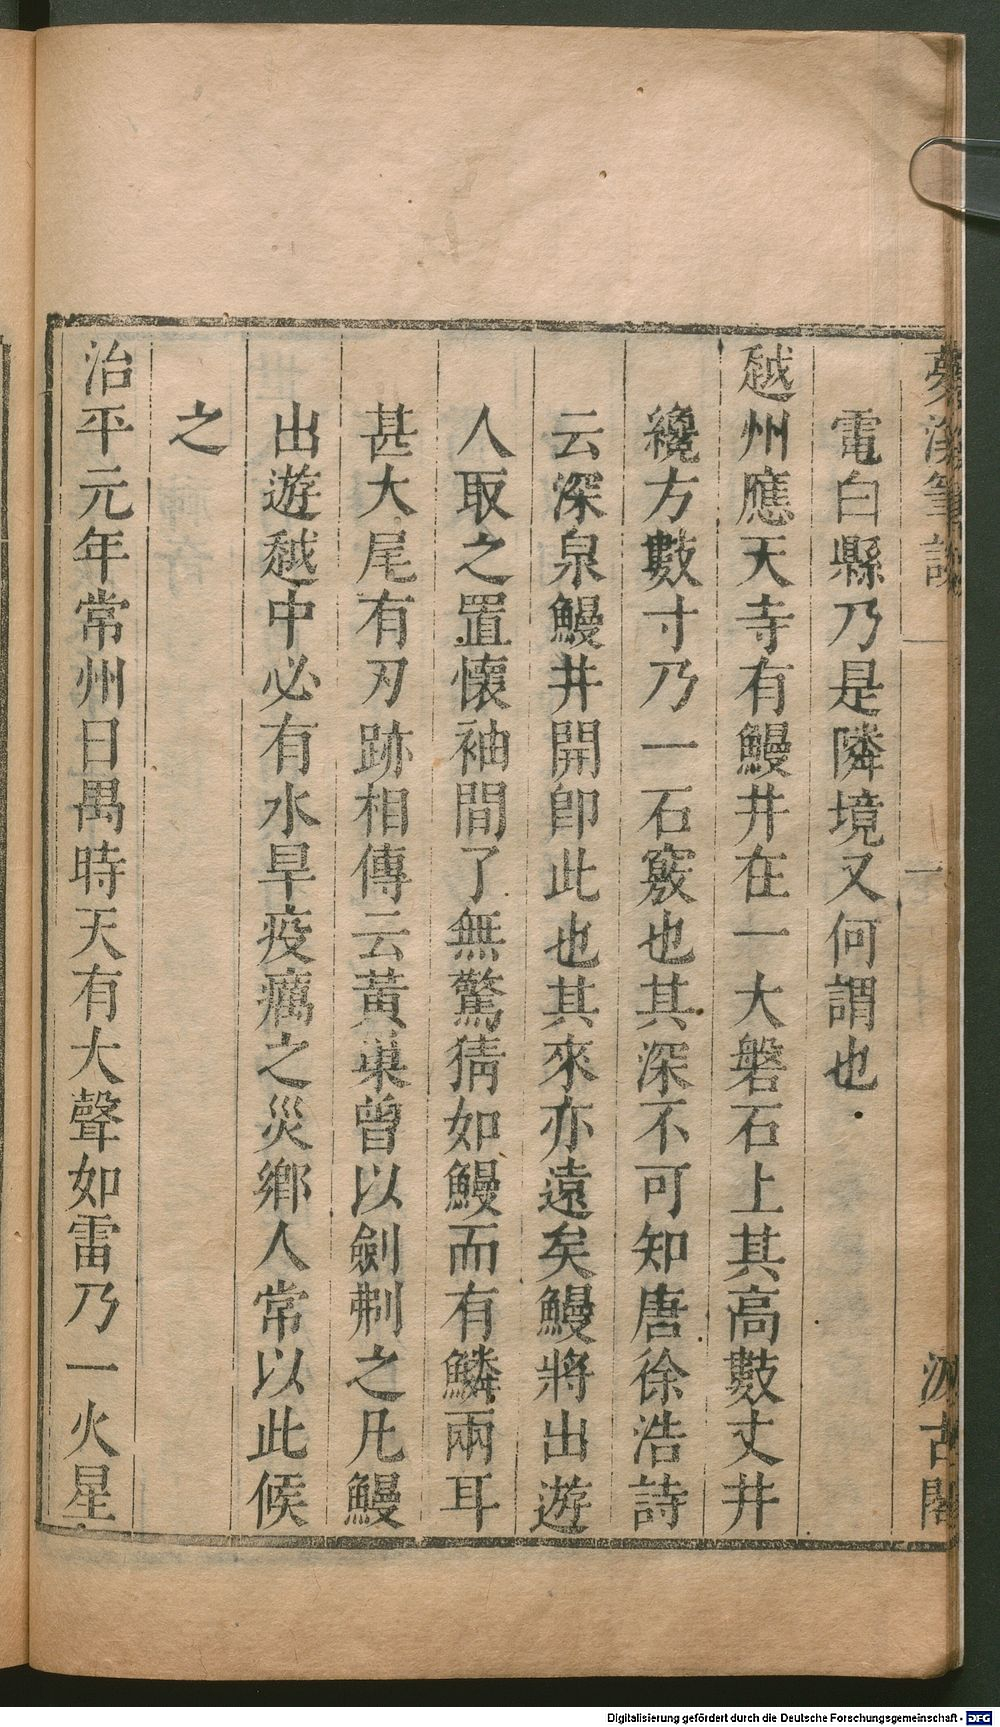 夢溪筆談 一 汲古閣
電白縣乃是隣境又何謂也
越州應天寺有鰻井在一大磐石上其高數丈井
纔方數寸乃一石竅也其深不可知唐徐浩詩
云深泉鰻井開卽此也其來亦遠矣鰻將出遊
人取之置懷袖間了無驚猜如鰻而有鱗兩耳
甚大尾有刃跡相傳云黃巢曾以劍刜之凡鰻
出遊越中必有水旱疫癘之災鄉人常以此候
之
治平元年常州日禺時天有大聲如雷乃一火星
Digitalisierung gefördert durch die Deutsche Forschungsgemeinschaft - DFG